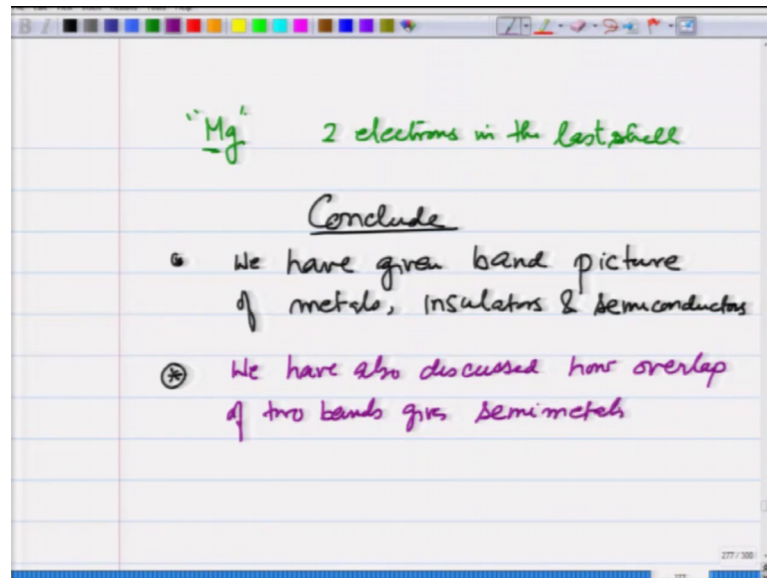 "Mg" 2 electrons in the last shell
Conclude
We have given band picture
of metals, insulators & semiconductors
We have also discussed how overlap
of two bands gives semimetals
277 / 300